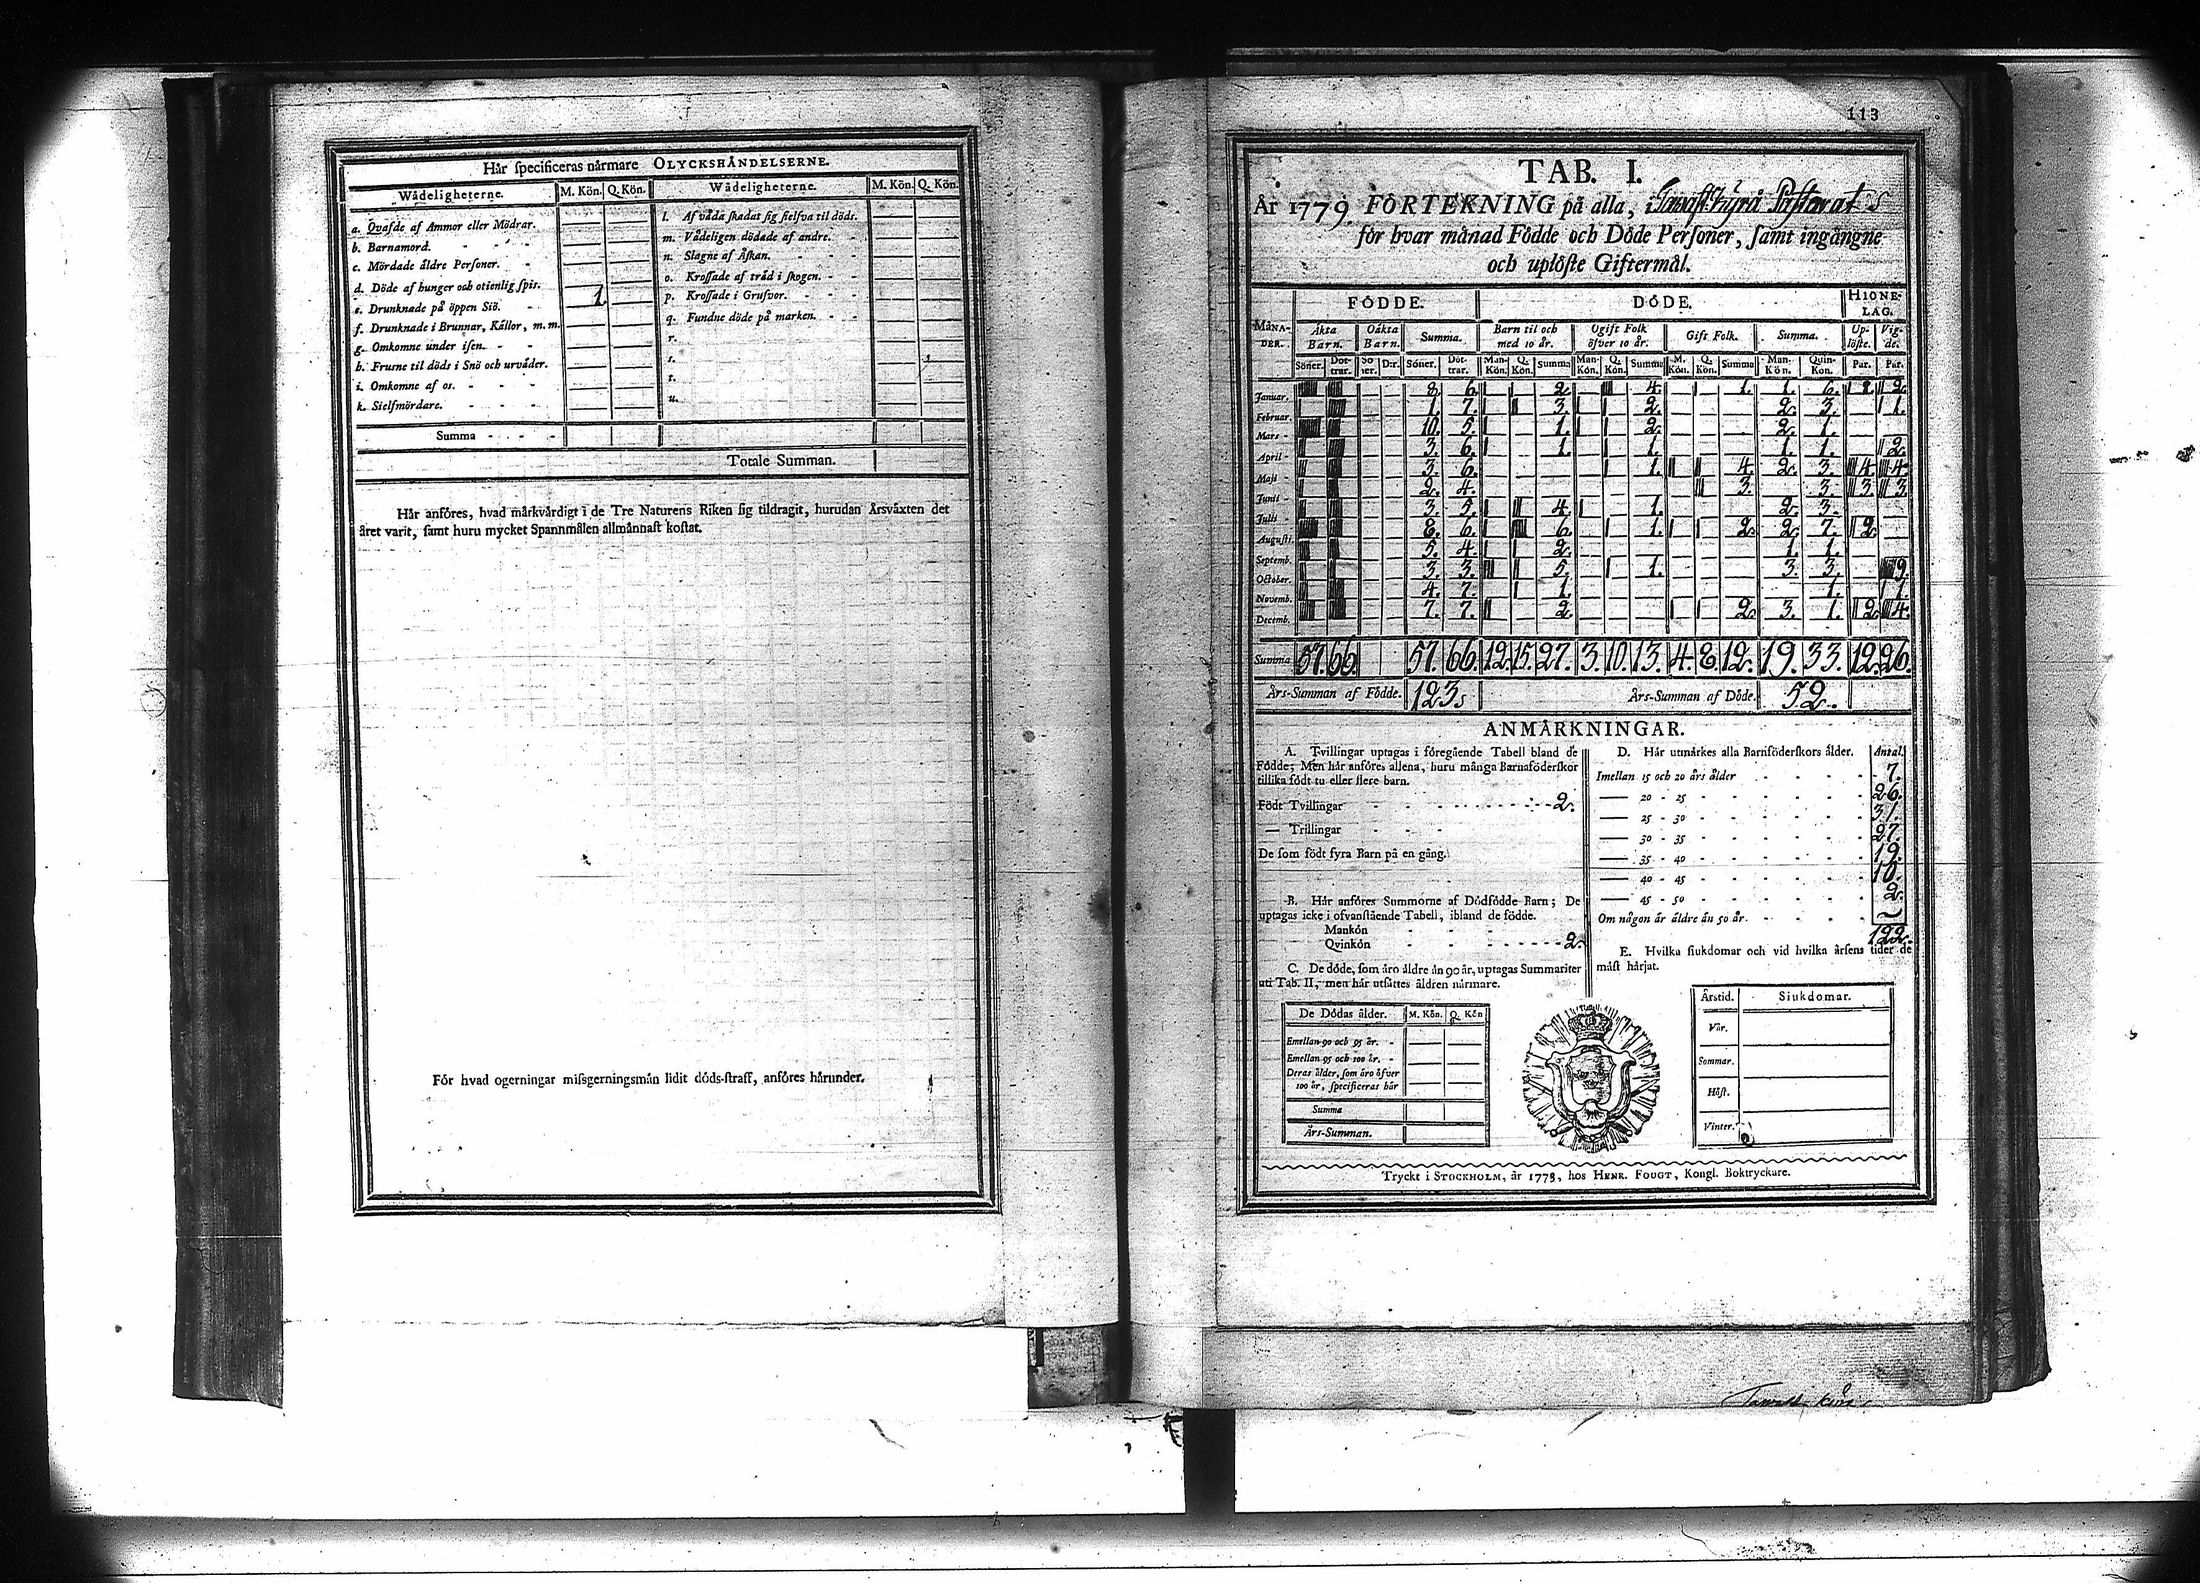 Hår ſpecificeras nårmare OLYCKSHÅNDELSERNE.
Wådeligheterne. M. Kön. Q. Kön. Wådeligheterne. M. Kön. Q. Kön.
a. Ovafde af Ammor eller Mödrar. — —
b. Barnamord. — —
c. Mördade åldre Perſoner. — —
d. Döde af hunger och otienlig ſpis. — —
e. Drunknade på öppen Siö. 1 —
f. Drunknade i Brunnar, Kållor, m.m. — —
g. Omkomne under iſen. — —
h. Fruſne til döds i Snö och urvåder. — —
i. Omkomne af os. — —
k. Sielfmördare. — —
l. Af våda ſkadat ſig ſielfva til döds. — —
m. Vådeligen dödade af andre. — —
n. Slagne af Åſkan. — —
o. Kroſſade af tråd i ſkogen. — —
p. Kroſſade i Grufvor. — —
q. Fundne döde på marken. — —
r.
s.
t.
u.
Summa
Totale Summan.
Hår anföres, hvad mårkvårdigt i de Tre Naturens Riken ſig tildragit, hurudan Årsvåxten det
året varit, ſamt huru mycket Spannmålen allmånnaſt koſtat.
För hvad ogerningar miſsgerningsmån lidit döds-ſtraff, anföres hårunder.
113
TAB. I.
År 1779. FÖRTEKNING på alla, i Tawast Kyrå Pastorat
för hvar månad Födde och Döde Perſoner, ſamt ingångne
och uplöſte Giftermål.
MÅNA-DER. FÖDDE. DÖDE. HIONE-LAG.
Åkta Barn. Oåkta Barn. Summa. Barn til och med 10 år. Ogift Folk öfver 10 år. Gift Folk. Summa. Up-löſte. Vig-de.
Söner. Döt-trar. Sö-ner. D:r. Söner. Döt-trar. Man-Kön. Q. Kön. Summa Man-Kön. Q. Kön. Summa M. Kön. Q. Kön. Summa Man-Kön. Quin-Kon. Par. Par.
Januar. 8. 6. 2. 4. 1. 1. 6. 1. 2.
Februar. 1. 7. 3. 2. 2. 3. 1.
Mars 10. 5. 1. 2. 2. 1.
April 3. 6. 1. 1. 1. 1. 2.
Maji 3. 6. 1. 4. 2. 3. 4. 4.
Junii 2. 4. 3. 3. 3. 3.
Julii 3. 5. 4. 1. 2. 3.
Auguſti. 8. 6. 6. 1. 2. 2. 7. 2.
Septemb. 5. 4. 2. 1. 1.
October. 3. 3. 5. 1. 3. 3. 9.
Novemb. 4. 7. 1. 1. 1.
Decemb. 7. 7. 2. 2. 3. 1. 2. 4.
Summa 57. 66. 57. 66. 12. 15. 27. 3. 10. 13. 4. 8. 12. 19. 33. 12. 26.
Års-Summan af Födde. 123. Års-Summan af Döde. 52.
ANMÅRKNINGAR.
A. Tvillingar uptagas i föregående Tabell bland de
Födde; Men hår anföres allena, huru många Barnaföderſkor
tillika födt tu eller flere barn.
Födt Tvillingar 2.
— Trillingar
De ſom födt fyra Barn på en gång.
B. Hår anföres Summorne af Dödfödde Barn; De
uptagas icke i ofvanſtående Tabell, ibland de födde.
Mankön
Qvinkön 2.
C. De döde, ſom åro åldre ån 90 år, uptagas Summariter
uti Tab. II, men hår utſåttes åldren nårmare.
De Dödas ålder. M. Kön. Q. Kön
Emellan 90 och 95 år. — —
Emellan 95 och 100 år. — —
Deras ålder, ſom åro öfver
100 år, ſpecificeras hår — —
Summa
Års-Summan.
D. Hår utmårkes alla Barnföderſkors ålder. Antal.
Imellan 15 och 20 års ålder 7.
— 20 - 25 26.
— 25 - 30 31.
— 30 - 35 27.
— 35 - 40 19.
— 40 - 45 10.
— 45 - 50 2.
Om någon år åldre ån 50 år. ~
122.
E. Hvilka ſiukdomar och vid hvilka årſens tider de
måſt hårjat.
Årstid. Siukdomar.
Vår.
Sommar.
Höſt.
Vinter.
Tryckt i STOCKHOLM, år 1773, hos HENR. FOUGT, Kongl. Boktryckare.